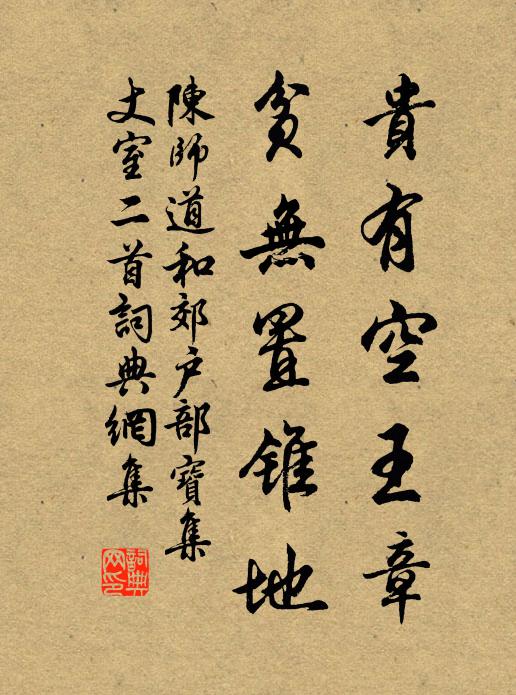 貴有空王章
貧無置錐地
陳師道和郊户部寶集
丈室二首詞典網集
詞典網印